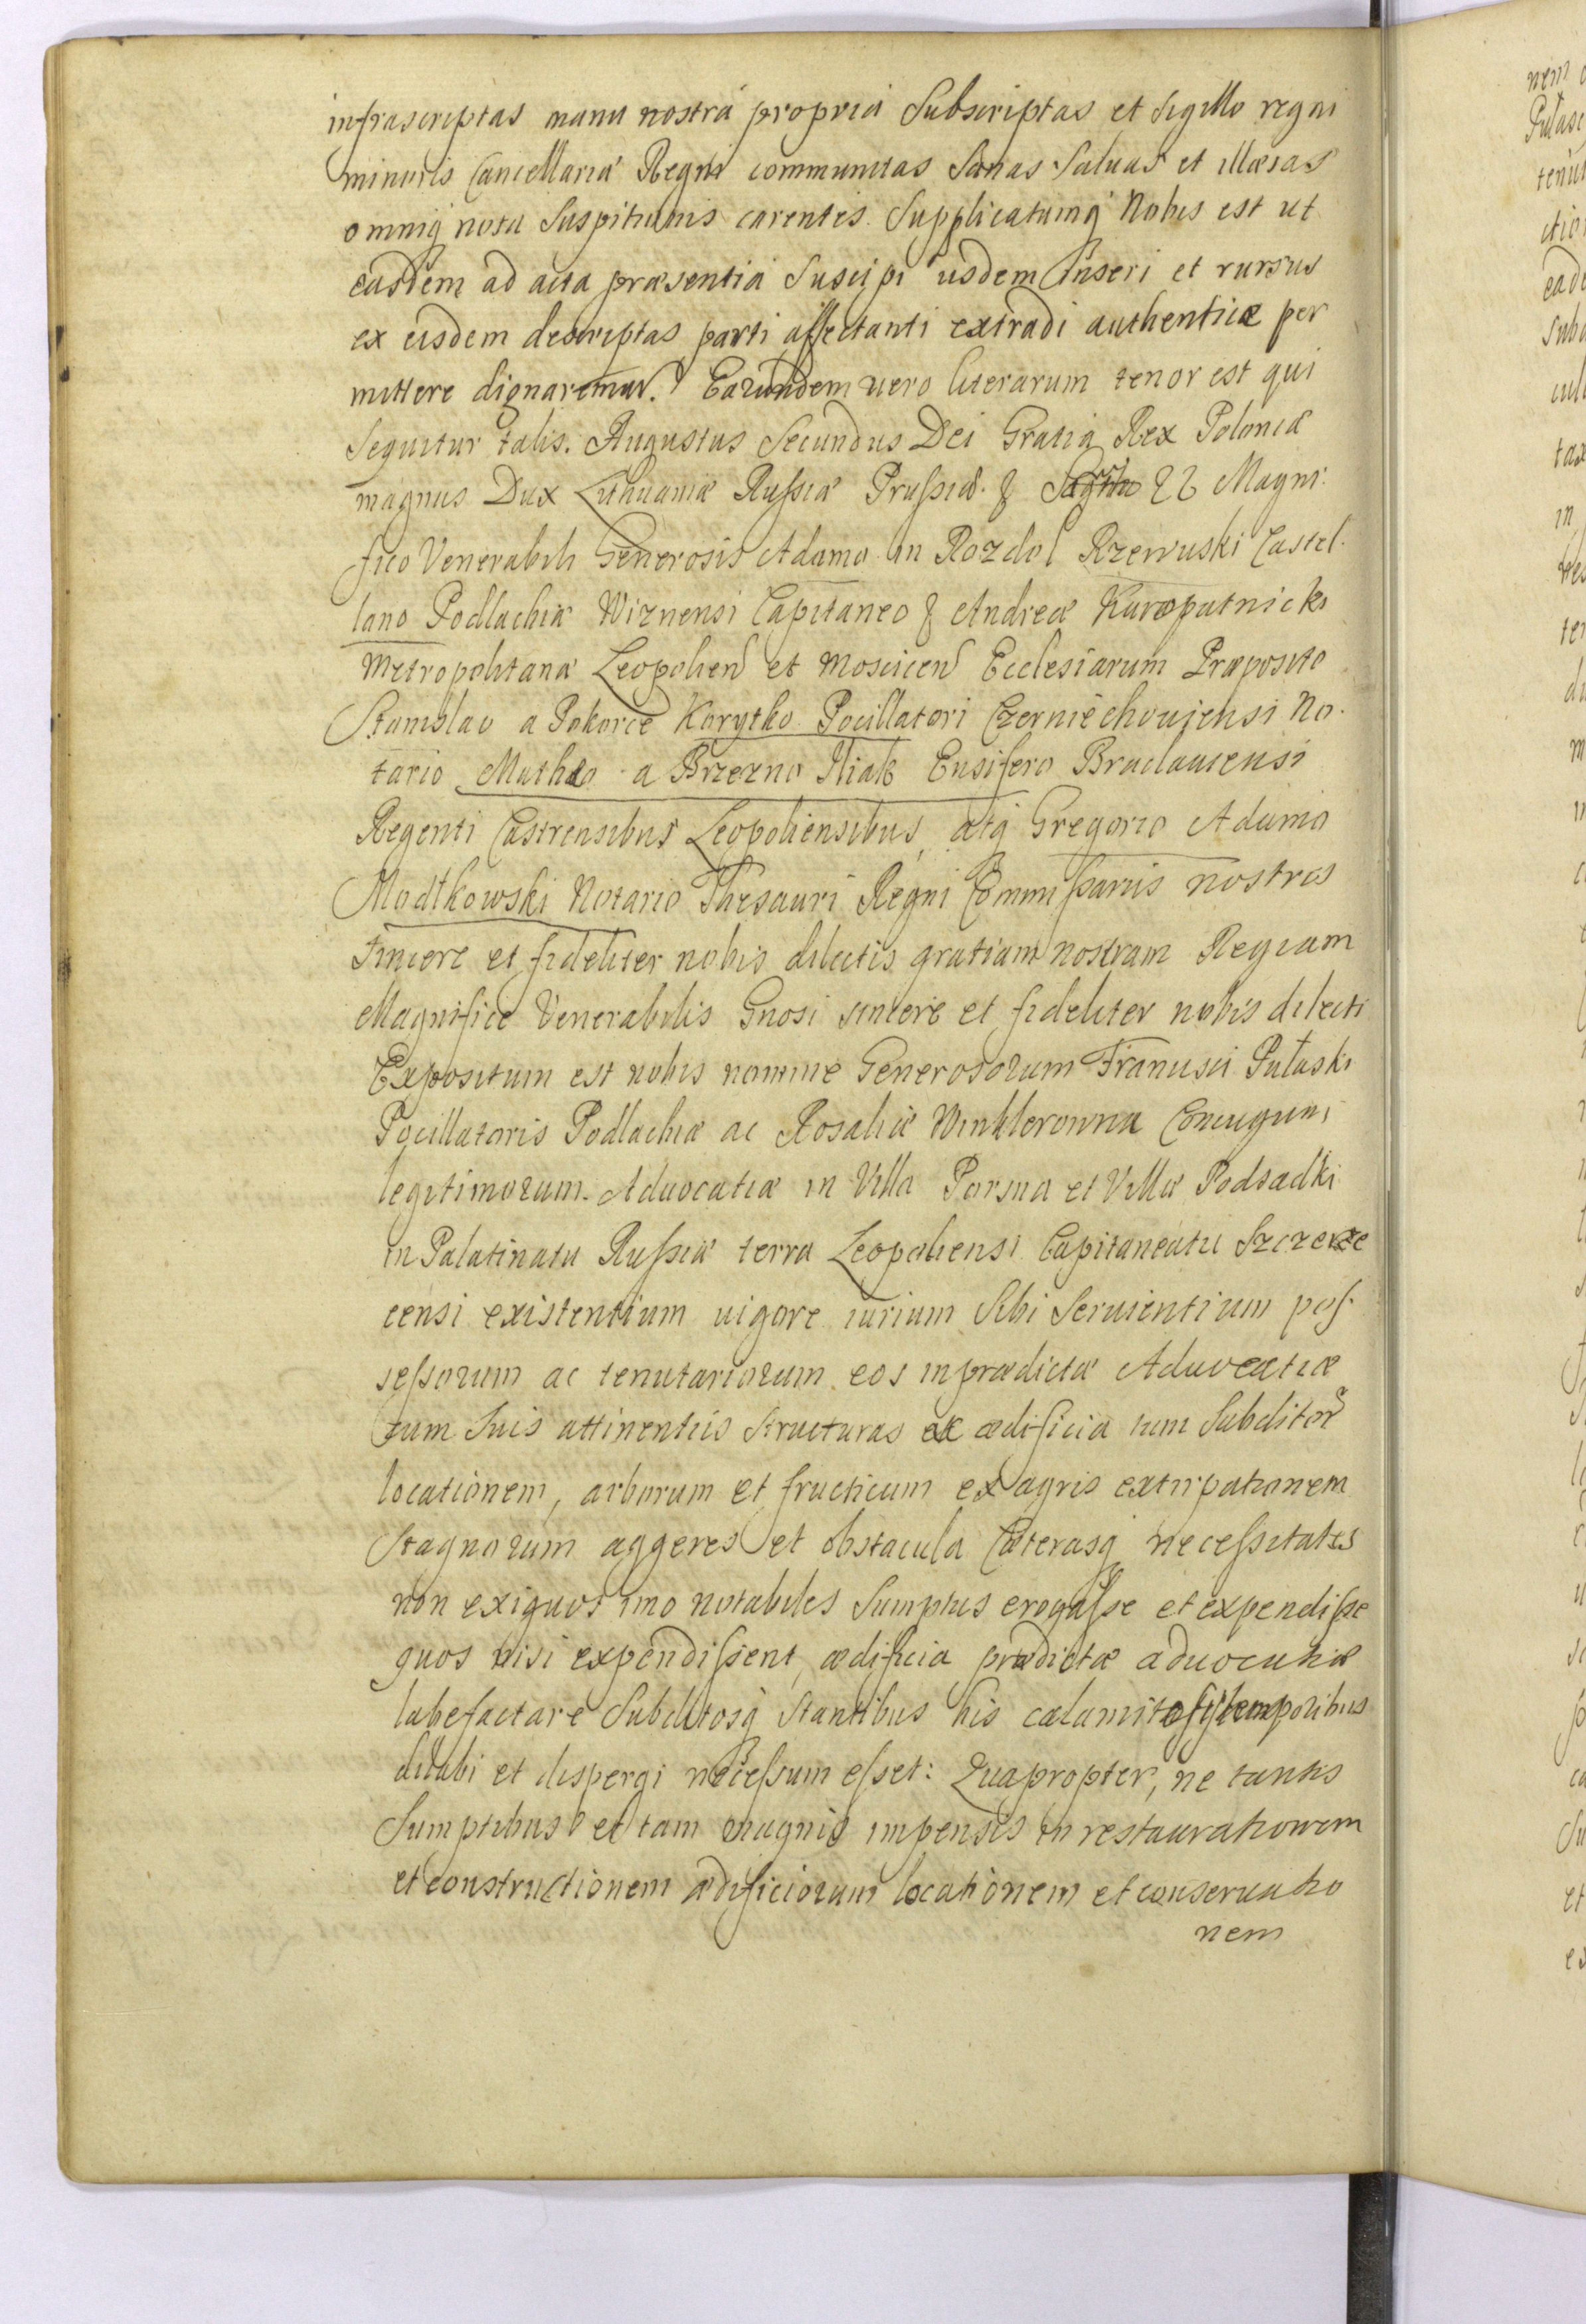 infrascriptas manu nostrá propriá Subscriptas et Sigillo regni
minoris Cancellariæ Regni communitas Sanas Saluas et illæsas
omniq nota Suspitionis carentes. Supplicatumq Nobis est ut
easdem ad acta præsentia Suscipi iisdem Inseri et rursus
ex eisdem descriptas parti affectanti extradi authentice per
mittere dignaremur. Earundem uero literarum tenor est qui
Sequitur talis. Augustus Secundus Dei Gratia Rex Poloniæ
magnus Dux Lithuaniæ Russiæ Prussiæ. & && Magni.
fico Venerabili Generosis Adamo in Rozdol Rzewuski Castel.
lano Podlachiæ Wiznensi Capitaneo & Andreæ Kuropatnicki
Metropolitanæ Leopolien et Moscicen Ecclesiarum Præposito
Stanislao a Pohorce Korytko Pocillatori Czerniechoviensi No.
tario Matheo a Brzezno Ensifero Braclauiensi
Regenti Castrensibus Leopoliensibus, atq Gregorio Adamo
Modłkowski Notario Thesauri Regni Commissariis nostris
Sincere et fideliter nobis dilectis gratiam nostram Regiam
Magnifice Venerabilis Gnosi sincere et fideliter nobis dilecti
Expositum est nobis nomine Generosorum Francisci Pułaski
Pocillatoris Podlachiæ ac Rosaliæ Winklerowna Coniugum
legitimorum. Aduocatiæ in Villa Porsna et Villæ Podsadki
in Palatinatu Russiæ terra Leopoliensi Capitaneatu Szczerze
censi existentium uigore iurium Sibi Seruientium pos.
sessorum ac tenutariorum eos in prædictæ Aduocatiæ
cum Suis attinentiis Structuras ac ædificia tum Subditor
locationem, arborum et fructicum ex agris extirpationem
Stagnorum aggeres et obstacula Cæterasq necessitates
non exiguos imo notabiles Sumptus erogasse et expendisse
quos nisi expendissent, ædificia prædictæ aduocatiæ
labefactare Subditosq Stantibus his calamitosis temporibus
dilabi et dispergi necessum esset: Quapropter, ne tantis
Sumptibus et tam magnis impensis in restaurationem
et constructionem ædificiorum locationem et conseruatio
nem